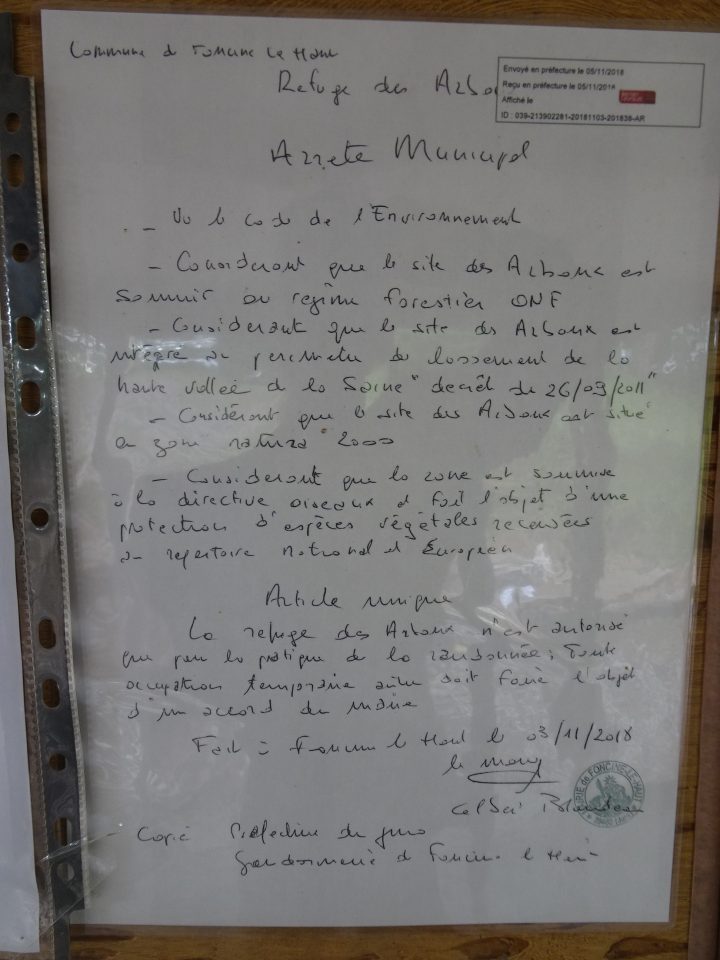 Commune de Foncine Le Haut
Refuge des Arboux
Envoyé en préfecture le 05/11/2018
Reçu en préfecture le 05/11/2018
Affiché le
ID : 039-213902281-20181103-201838-AR
Arrete Municipal
- Vu le code de l'Environnement
- Considerant que le site des Arboux est
soumis au régime forestier ONF
- Considerant que le site des Arboux est
intégré au perimetre de classement de la
haute vallée de la Saine "decrêt du 26/09/2011"
- Considérant que le site des Arboux est situé
en zone natura "2000"
- Considerant que la zone est soumise
à la directive oiseaux et fait l'objet d'une
protection d'espèces végétales recensées
au repertoire national et Européen
Article unique
Le refuge des Arboux n'est autorisé
que pour la pratique de la randonnée ; Toute
occupation temporaire autre doit faire l'objet
d'un accord du maire
Fait à Foncine le Haut le 03/11/2018
le maire
MAIRIE de FONCINE-LE-HAUT
Copie Préfecture du jura
Gendarmerie de Foncine le Haut